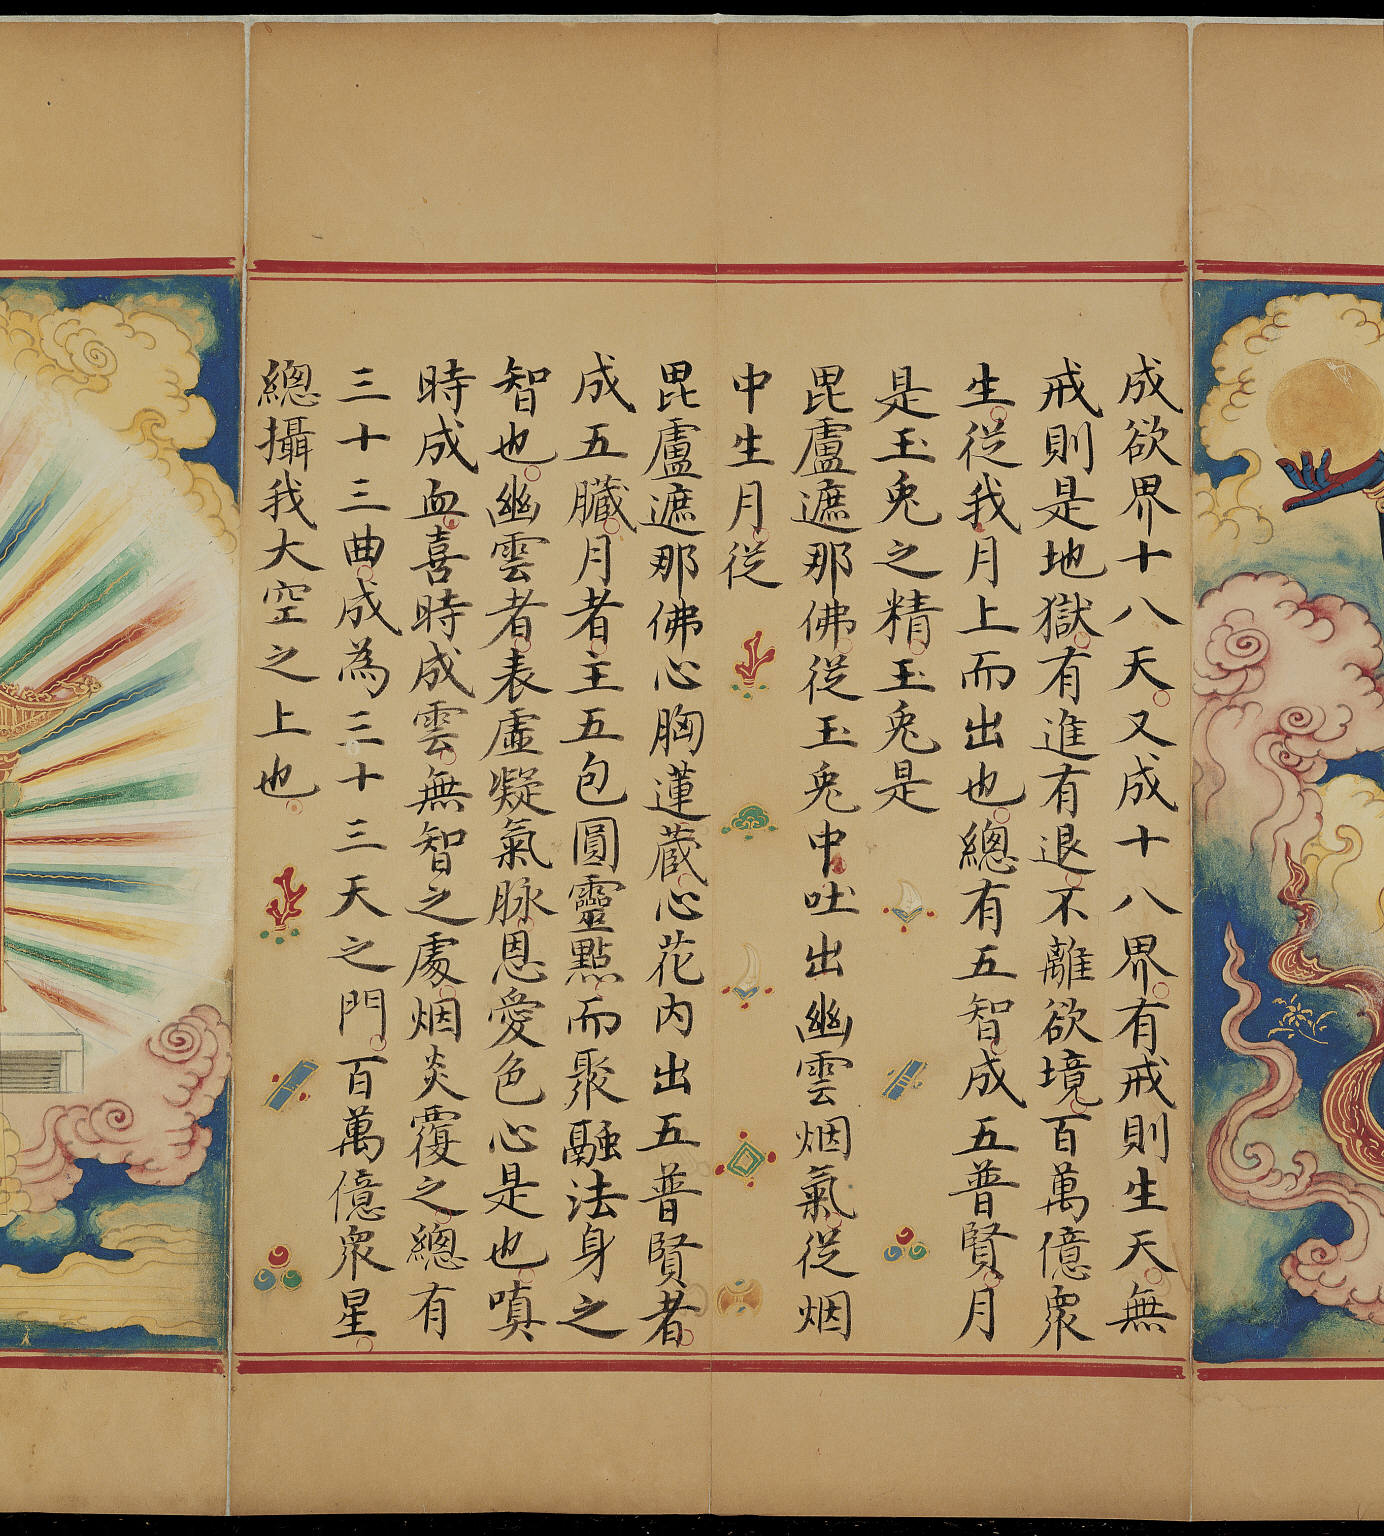 成欲界十八天又成十八界有戒則生天無
戒則是地獄有進有退不離欲境百萬億衆
生從我月上而出也總有五智成五普賢月
是玉兎之精玉兎是
毘盧遮那佛從玉兎中吐出幽雲烟氣從烟
中生月從
毘盧遮那佛心胸蓮蔵心花内出五普賢者
成五臟月者主五包圓靈點而聚融法身之
智也幽雲者表虛凝氣脉恩愛色心是也嗔
時成血喜時成雲無智之處烟炎覆之總有
三十三曲成為三十三天之門百萬億衆星
總攝我大空之上也